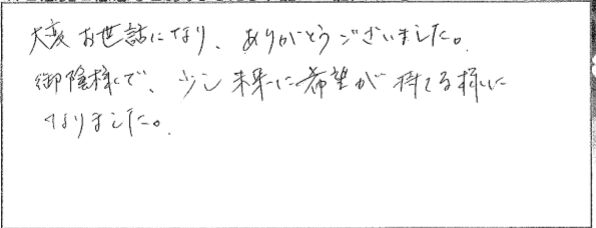 大変お世話になり、ありがとうございました。
御陰様で、少し未来に希望が持てる様に
なりました。